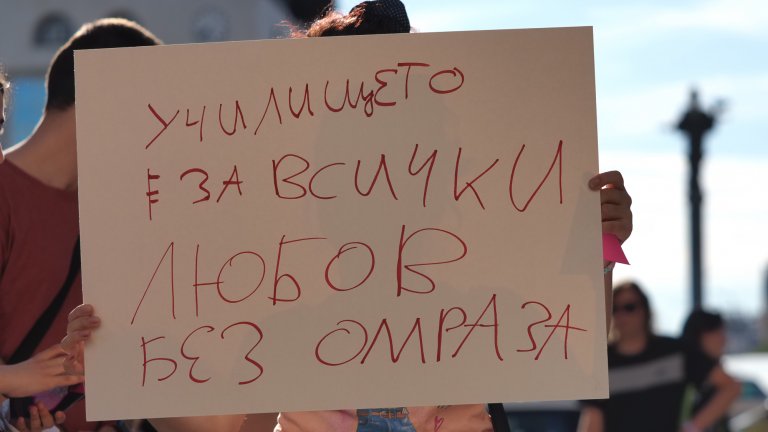 УЧИЛИЩЕТО
Е ЗА ВСИЧКИ
ЛЮБОВ
БЕЗ ОМРАЗА